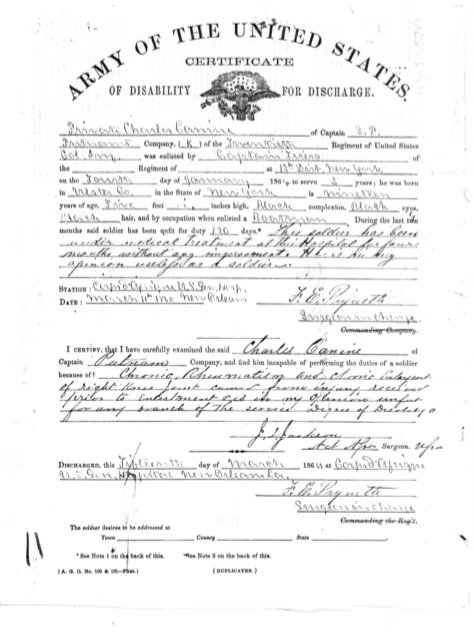 ARMY OF THE UNITED STATES.
CERTIFICATE
OF DISABILITY FOR DISCHARGE.
Private Charles Canine of Captain E. P.
Company, (K) of the Twentieth Regiment of United States
Col. Inf. was enlisted by Captain of
the Regiment of 12th Dist. New York
on the Fourth day of January 1864, to serve 3 years; he was born
in Ulster Co. in the State of New York is nineteen
years of age, Five feet inches high, Black complexion, Black eyes,
Black hair, and by occupation when enlisted a Boatman During the last two
months said soldier has been unfit for duty 120 days.* This soldier has been
under medical treatment at this Hospital for four
months without any improvement. He is in my
opinion useless as a soldier.
STATION: Corps d'Afrique U.S. Gen. Hosp.
DATE: March New Orleans
Surg in charge
Commanding Company.
I CERTIFY, that I have carefully examined the said Charles Canine of
Captain Putnam Company, and find him incapable of performing the duties of a soldier
because of† Chronic Rheumatism and
of right Knee Joint caused from injury received
prior to Enlistment and in my Opinion unfit
for any branch of the service Degree of Disability
Surgeon.
DISCHARGED, this day of March 186 at Corps d'Afrique
U.S. Gen. Hospital New Orleans La.
Surg in charge
Commanding the Reg't.
The soldier desires to be addressed at
Town County State
* See Note 1 on the back of this. See Note 2 on the back of this.
(A. G. O. No. 100 & 101—First.) (DUPLICATES.)